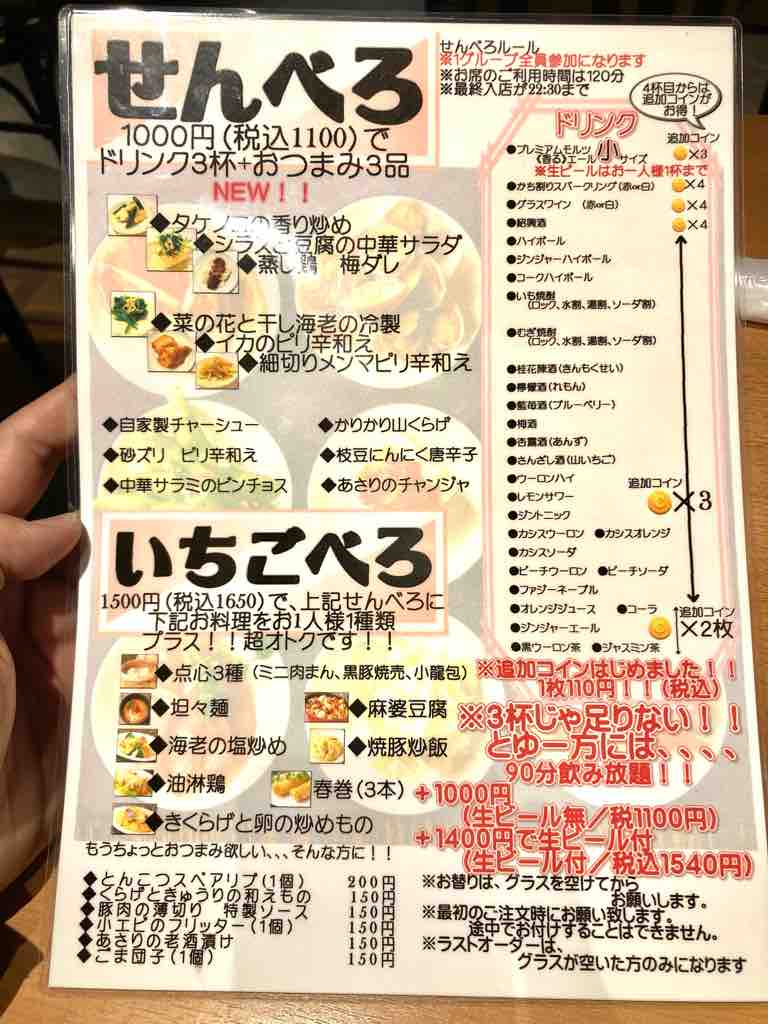 せんべろ
1000円(税込1100)で
ドリンク3杯+おつまみ3品
せんべろルール
※1グループ全員参加になります
※お席のご利用時間は120分
※最終入店が22:30まで
NEW!!
◆タケノコの香り炒め
◆シラスと豆腐の中華サラダ
◆蒸し鶏 梅ダレ
◆菜の花と干し海老の冷製
◆イカのピリ辛和え
◆細切りメンマピリ辛和え
◆自家製チャーシュー ◆かりかり山くらげ
◆砂ズリ ピリ辛和え ◆枝豆にんにく唐辛子
◆中華サラミのピンチョス ◆あさりのチャンジャ
4杯目からは
追加コインが
お得!
ドリンク
追加コイン
●プレミアムモルツ 小 ×3
《香る》エール サイズ
※生ビールはお一人様1杯まで
●かち割りスパークリング(赤or白) ×4
●グラスワイン (赤or白) ×4
●紹興酒 ×4
●ハイボール
●ジンジャーハイボール
●コークハイボール
●いも焼酎
(ロック、水割、湯割、ソーダ割)
●むぎ焼酎
(ロック、水割、湯割、ソーダ割)
●桂花陳酒(きんもくせい)
●檸檬酒(れもん)
●藍苺酒(ブルーベリー)
●梅酒
●杏露酒(あんず)
●さんざし酒(山いちご)
●ウーロンハイ 追加コイン
●レモンサワー ×3
●ジントニック
●カシスウーロン ●カシスオレンジ
●カシスソーダ
●ピーチウーロン ●ピーチソーダ
●ファジーネーブル
●オレンジジュース ●コーラ 追加コイン
●ジンジャーエール ×2枚
●黒ウーロン茶 ●ジャスミン茶
いちごべろ
1500円(税込1650)で、上記せんべろに
下記お料理をお1人様1種類
プラス!!超オトクです!!
◆点心3種(ミニ肉まん、黒豚焼売、小龍包)
◆坦々麺 ◆麻婆豆腐
◆海老の塩炒め ◆焼豚炒飯
◆油淋鶏 ◆春巻(3本)
◆きくらげと卵の炒めもの
※追加コインはじめました!!
1枚110円!!(税込)
※3杯じゃ足りない!!
とゆー方には、、、、
90分飲み放題!!
+1000円
(生ビール無/税1100円)
+1400円で生ビール付
(生ビール付/税込1540円)
もうちょっとおつまみ欲しい、、、そんな方に!!
◆とんこつスペアリブ(1個) 200円
◆くらげときゅうりの和えもの 150円
◆豚肉の薄切り 特製ソース 150円
◆小エビのフリッター(1個) 150円
◆あさりの老酒漬け 150円
◆ごま団子(1個) 150円
※お替りは、グラスを空けてから
お願いします。
※最初のご注文時にお願い致します。
途中でお付けすることはできません。
※ラストオーダーは、
グラスが空いた方のみになります